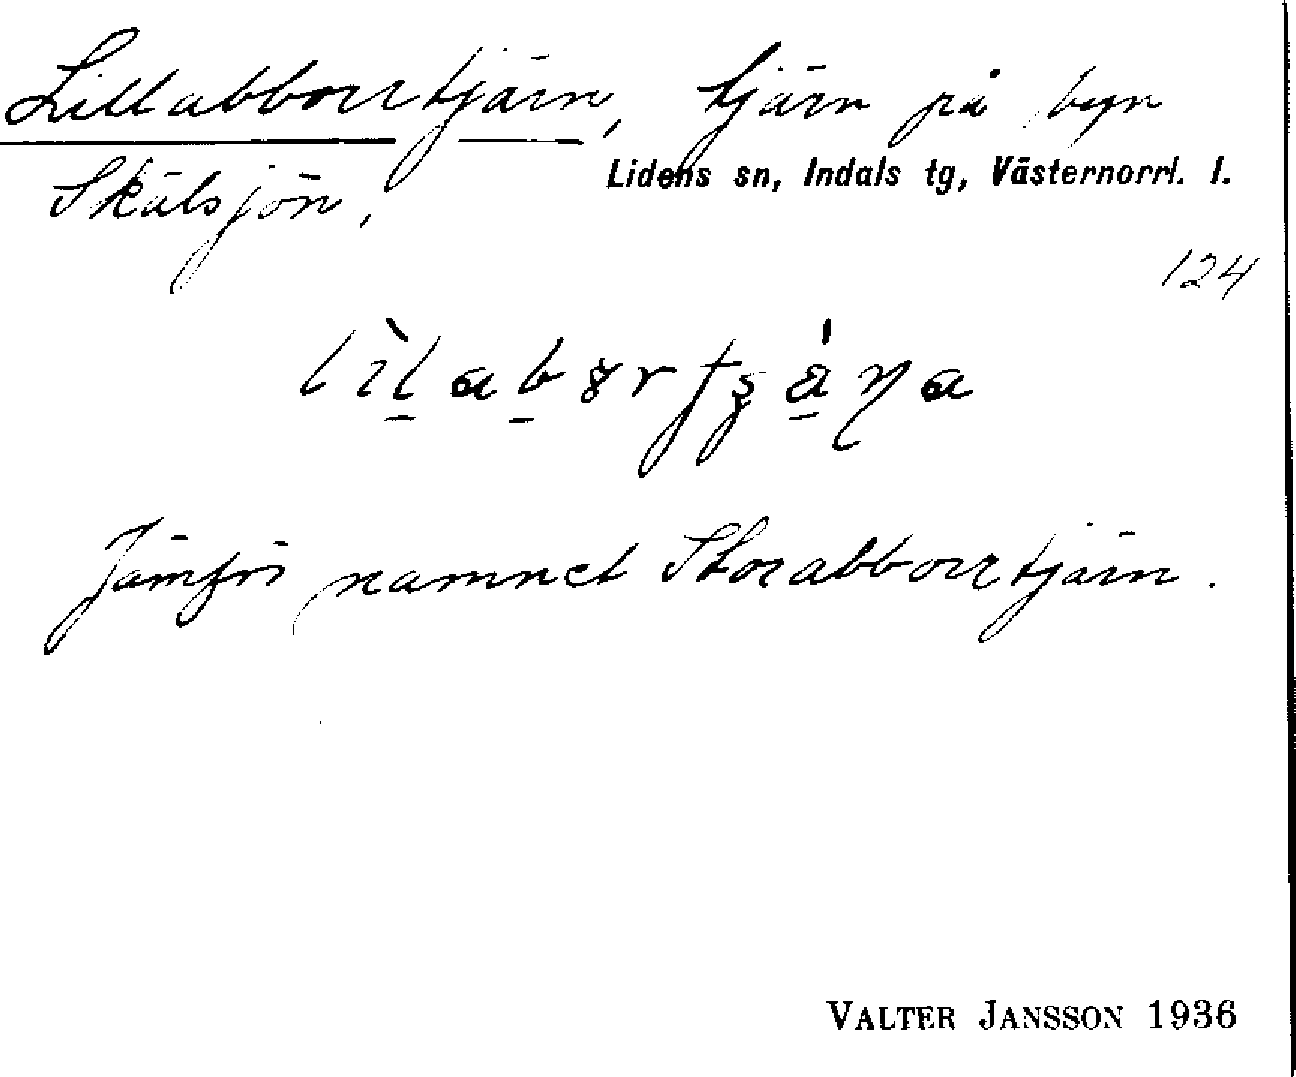 Lillabborrtjärn, tjärn på byn
Skälsjön,
Lidens sn, Indals tg, Västernorrl. l.
124
Jämför namnet Storabborrtjärn.
VALTER JANSSON 1936